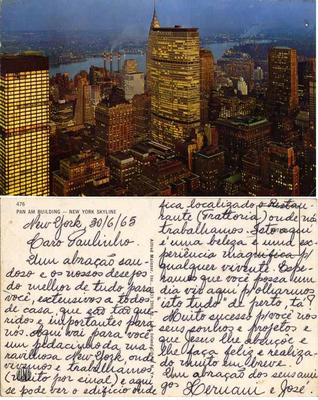 476
PAN AM BUILDING — NEW YORK SKYLINE
New York, 30/6/65
Caro Paulinho.
Um abração sau-
doso e os nossos desejos
do melhor de tudo para
você, extensivos a todos
de casa, que são tão que-
ridos e importantes para
nós. Aqui vai para você
um pedacinho da ma-
ravilhosa New York onde
vivemos e trabalhamos,
(muito por sinal) e aqui
se pode ver o edifício onde
fica localizado o Restau-
rante (Trattoria) onde nós
trabalhamos. Isto aqui
é uma beleza e uma ex-
periência magnífica p/
qualquer vivente. Espe-
ramos que você possa um
dia ver aqui e olharmos
"isto tudo" de perto, tá?
Muito sucesso p/você nos
seus sonhos e projetos e
que Jesus lhe abençõe e
lhe faça feliz e realiza-
do muito em breve.
Um abração dos seus ami-
gos Hernani e José.